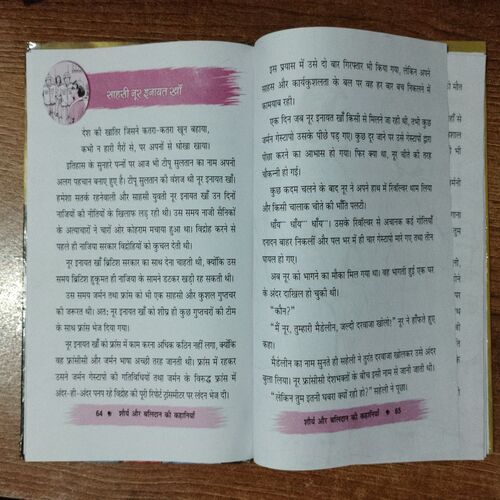 साहसी नूर इनायत खाँ
देश की खातिर जिसने कतरा-कतरा खून बहाया,
कभी न हारी गैरों से, पर अपनों से धोखा खाया।
इतिहास के सुनहरे पन्नों पर आज भी टीपू सुलतान का नाम अपनी
अलग पहचान बनाए हुए है। टीपू सुलतान की वंशज थी नूर इनायत खाँ।
हमेशा सतर्क रहनेवाली और साहसी युवती नूर इनायत खाँ उन दिनों
नाजियों की नीतियों के खिलाफ लड़ रही थी। उस समय नाजी सैनिकों
के अत्याचारों ने चारों ओर कोहराम मचाया हुआ था। विद्रोह करने से
पहले ही नाजी सरकार विद्रोहियों को कुचल देती थी।
नूर इनायत खाँ ब्रिटिश सरकार का साथ देना चाहती थी, क्योंकि उस
समय ब्रिटिश हुकूमत ही नाजियों के सामने डटकर खड़ी रह सकती थी।
उस समय जर्मन तथा फ्रांस को भी एक साहसी और कुशल गुप्तचर
की जरूरत थी। अतः नूर इनायत खाँ को शीघ्र ही कुछ गुप्तचरों की टीम
के साथ फ्रांस भेज दिया गया।
नूर इनायत खाँ को फ्रांस में काम करना अधिक कठिन नहीं लगा, क्योंकि
वह फ्रांसीसी और जर्मन भाषा अच्छी तरह जानती थी। फ्रांस में रहकर
उसने जर्मन गेस्टापो की गतिविधियों तथा जर्मन के विरुद्ध फ्रांस में
अंदर-ही-अंदर पनप रहे विद्रोह की पूरी रिपोर्ट ट्रांसमीटर पर लंदन भेज दी।
64 शौर्य और बलिदान की कहानियाँ
इस प्रयास में उसे दो बार गिरफ्तार भी किया गया, लेकिन अपने
साहस और कार्यकुशलता के बल पर वह हर बार बच निकलने में
कामयाब रही।
एक दिन जब नूर इनायत खाँ किसी से मिलने जा रही थी, तभी कुछ
जर्मन गेस्टापो उसके पीछे पड़ गए। कुछ दूर जाने पर उसे गेस्टापों द्वारा
पीछा करने का आभास हो गया। फिर क्या था, नूर चीते की तरह
चौकन्नी हो गई।
कुछ कदम चलने के बाद नूर ने अपने हाथ में रिवॉल्वर थाम लिया
और किसी चालाक चीते की भाँति पलटी।
धाँय धाँय धाँय । उसके रिवॉल्वर से अचानक कई गोलियाँ
दनादन बाहर निकलीं और पल भर में ही चार गेस्टापो मारे गए तथा तीन
घायल हो गए।
अब नूर को भागने का मौका मिल गया था। वह भागती हुई एक घर
के अंदर दाखिल हो चुकी थी।
“कौन?”
“मैं नूर, तुम्हारी मैडेलीन, जल्दी दरवाजा खोलो!” नूर ने हाँफते हुए
कहा।
मैडेलीन का नाम सुनते ही सहेली ने तुरंत दरवाजा खोलकर उसे अंदर
बुला लिया। नूर फ्रांसीसी देशभक्तों के बीच इसी नाम से जानी जाती थी।
“लेकिन तुम इतनी घबरा क्यों रही हो?” सहेली ने पूछा।
शौर्य और बलिदान की कहानियाँ 65